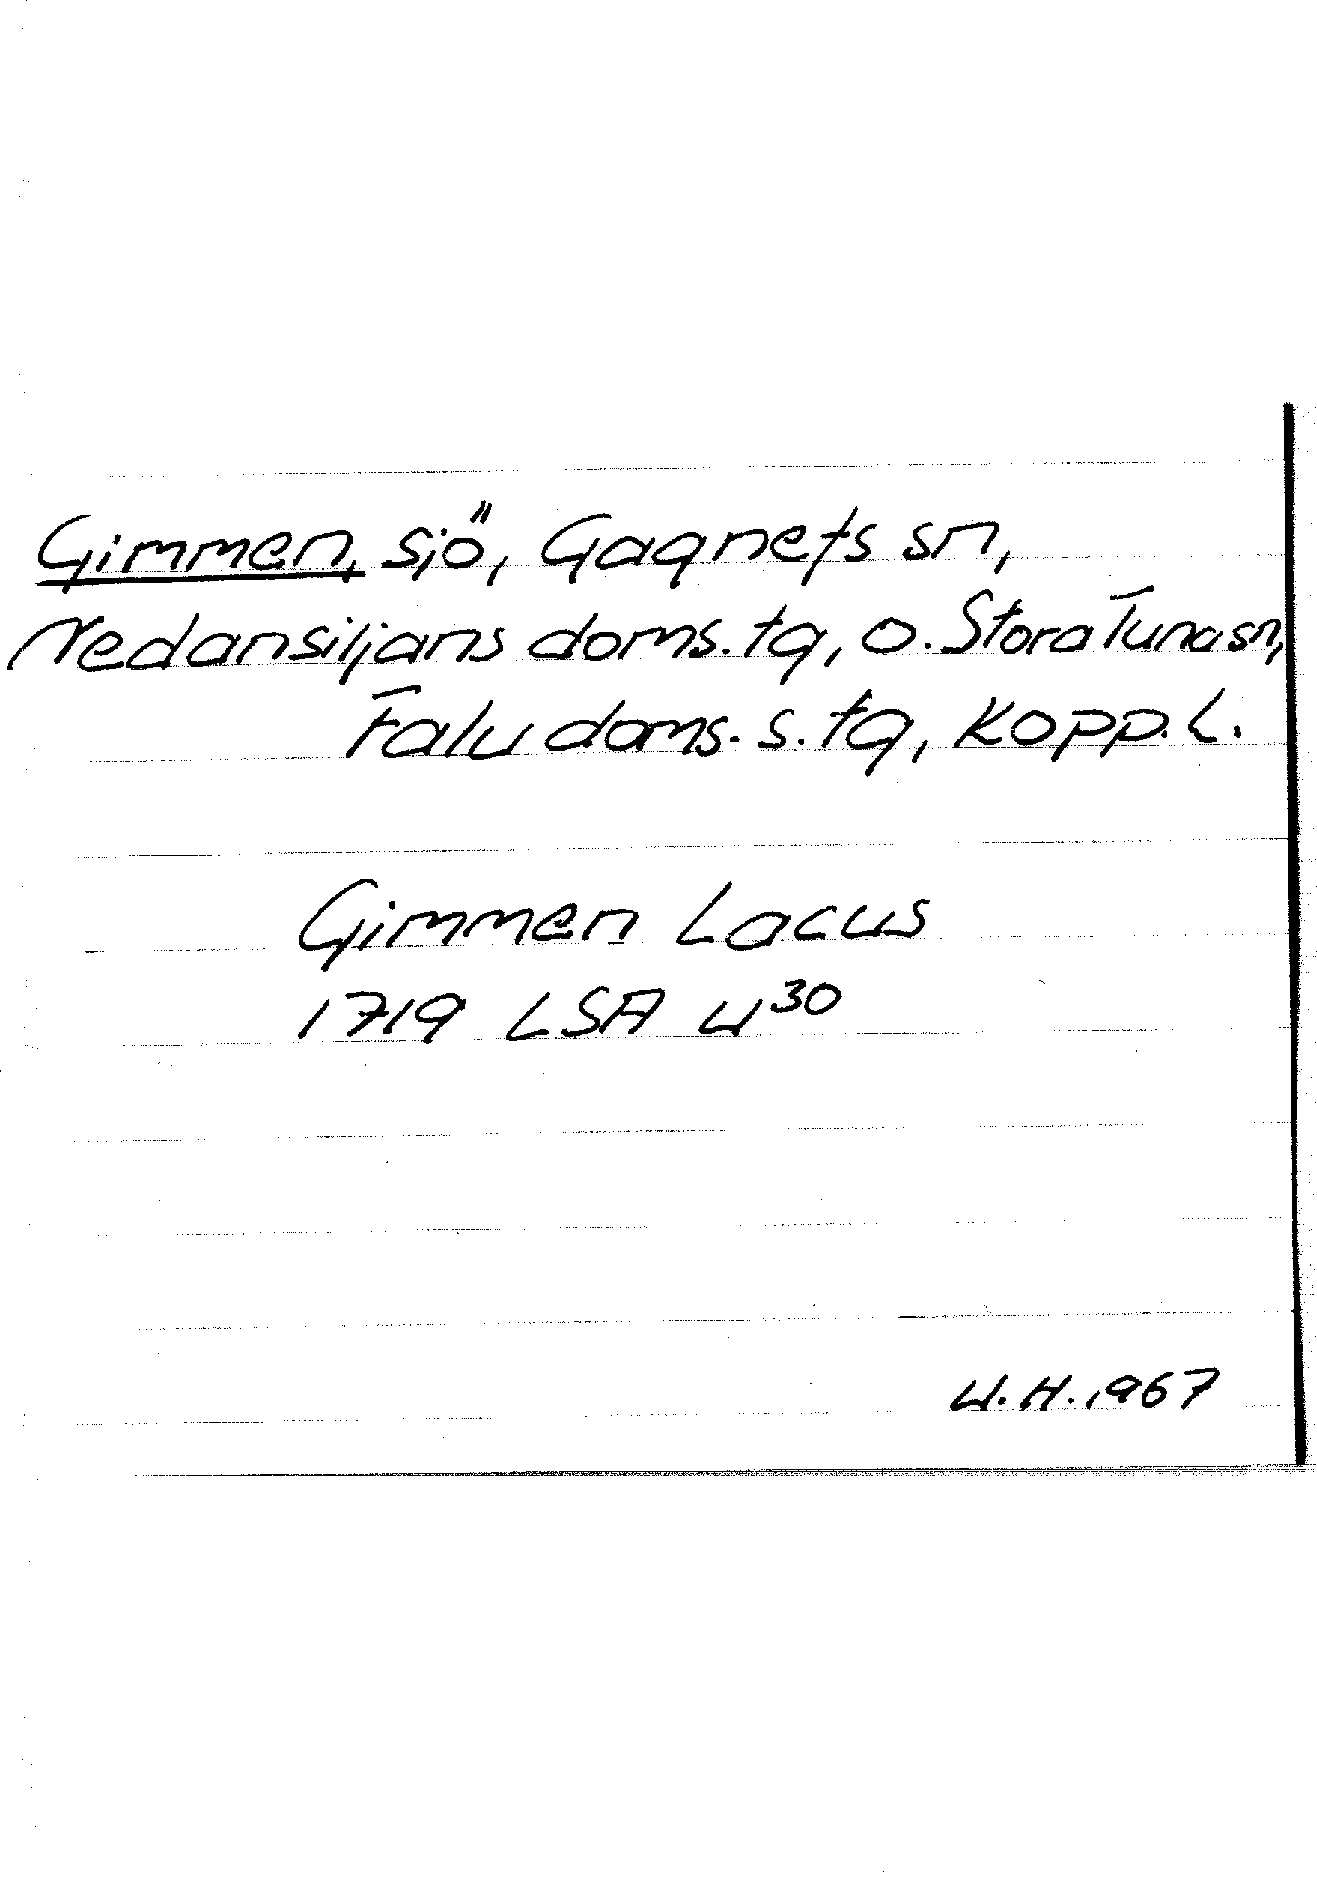 Gimmen, sjö, Gagnefs sn,
Nedansiljans doms. tg, o. Stora Tuna sn,
Falu doms. s. tg, Kopp. L.
Gimmen Lacus
1719 LSA W30
W.H. 1967